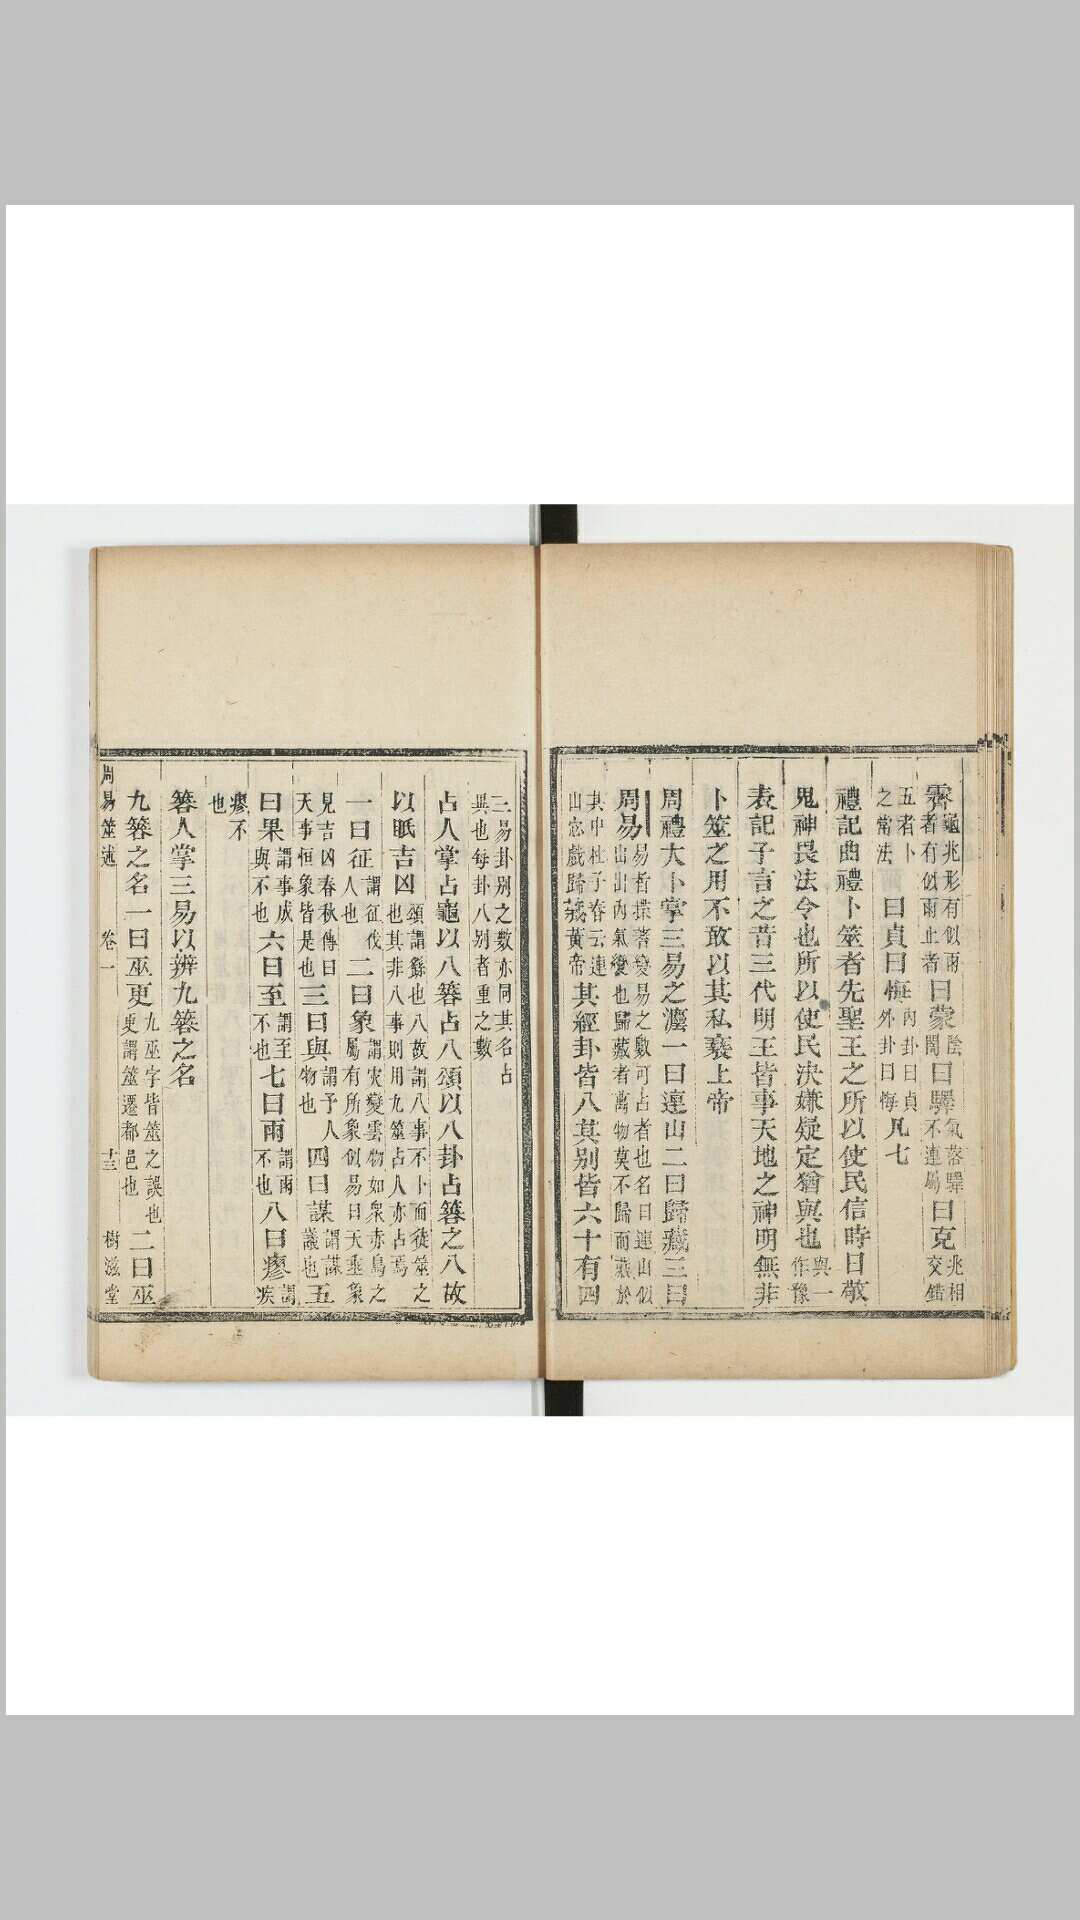 霽龜兆形有似雨者有似雨止者曰蒙陰闇曰驛氣落驛不連屬曰克兆相交錯
五者卜之常法曰貞曰悔內卦曰貞外卦曰悔凡七
禮記曲禮卜筮者先聖王之所以使民信時日敬
鬼神畏法令也所以使民決嫌疑定猶與也與一作豫
表記子言之昔三代明王皆事天地之神明無非
卜筮之用不敢以其私褻上帝
周禮大卜掌三易之灋一曰連山二曰歸藏三曰
周易易者揲蓍變易之數可占者也名曰連山似山出內氣變也歸藏者萬物莫不歸而藏於
其中杜子春云連山宓戲歸藏黃帝其經卦皆八其別皆六十有四
三易卦别之數亦同其名占異也每卦八别者重之數
占人掌占龜以八簭占八頌以八卦占簭之八故
以眡吉凶頌謂繇也八故謂八事不卜而徒筮之也其非八事則用九筮占人亦占焉
一曰征謂征伐人也二曰象謂灾變雲物如衆赤鳥之屬有所象似易曰天垂象
見吉凶春秋傳曰天事恒象皆是也三曰與謂予人物也四曰謀謂謀議也五
曰果謂事成與不也六曰至謂至不也七曰雨謂雨不也八曰瘳謂疾
瘳不也
簭人掌三易以辨九簭之名
九簭之名一曰巫更九巫字皆筮之誤也更謂筮遷都邑也二曰巫
周易筮述 卷一 十三 樹滋堂